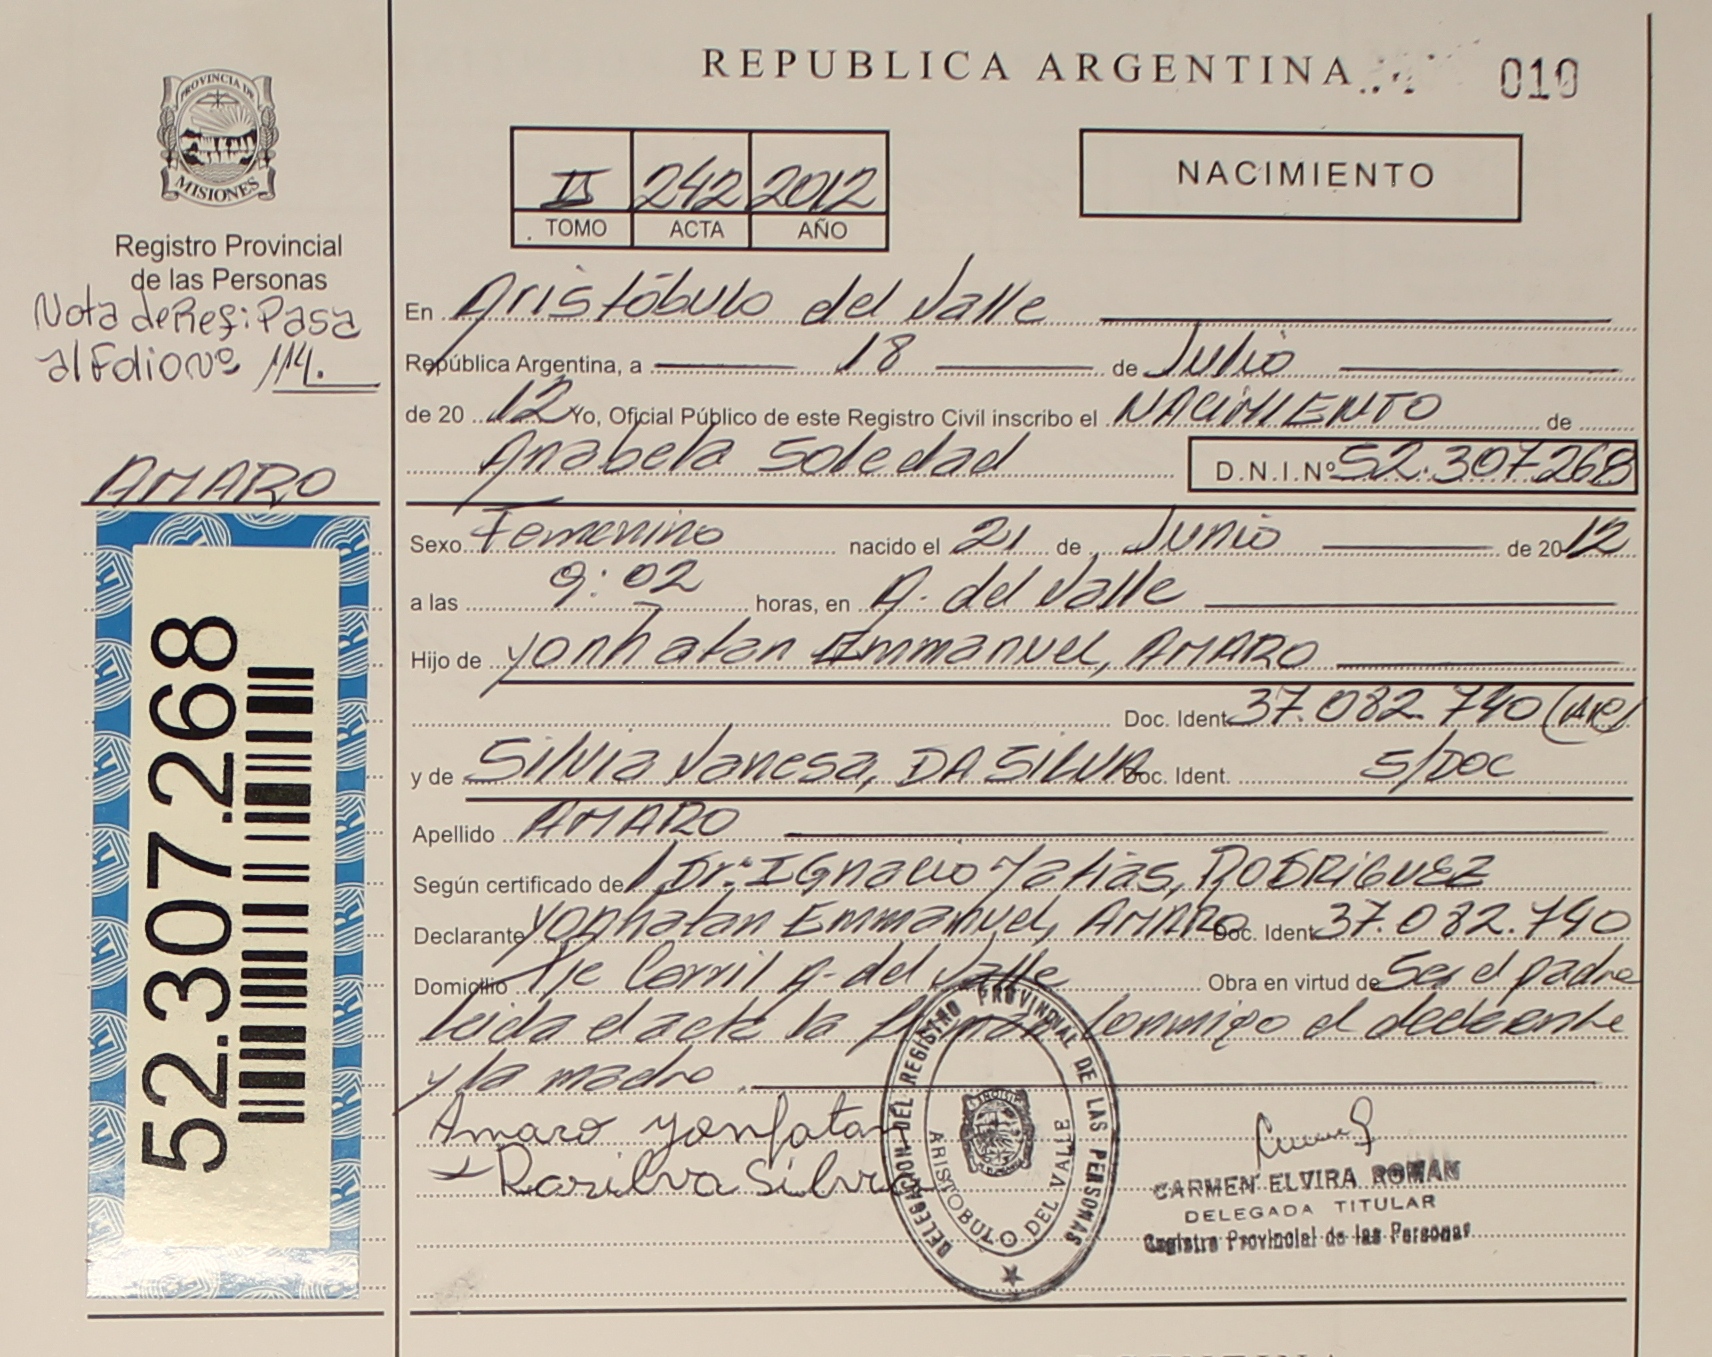 REPUBLICA ARGENTINA
010
PROVINCIA DE
MISIONES
Registro Provincial
de las Personas
Nota de Ref: Pasa
al Folio Nº 114.
AMARO
52.307.268
II 242 2012
TOMO ACTA AÑO
NACIMIENTO
En Aristóbulo del Valle
República Argentina, a 18 de Julio
de 20 12 Yo, Oficial Público de este Registro Civil inscribo el NACIMIENTO de
Anabela Soledad D.N.I.Nº 52.307.268
Sexo Femenino nacido el 21 de Junio de 20 12
a las 9:02 horas, en A. del Valle
Hijo de Yonhatan Emmanuel, AMARO
Doc. Ident. 37.082.740
y de Silvia Vanesa, DA SILVA Doc. Ident. S/DOC
Apellido AMARO
Según certificado de Dr: Ignacio Matias, RODRIGUEZ
Declarante Yonhatan Emmanuel, AMARO Doc. Ident. 37.082.740
Domicilio A. del Valle Obra en virtud de Ser el padre
Leida el acta la firman conmigo el declarante
y la madre
Amaro yonhatan
Dasilva Silvia
DELEGACION DEL REGISTRO PROVINCIAL DE LAS PERSONAS
ARISTOBULO DEL VALLE
CARMEN ELVIRA ROMAN
DELEGADA TITULAR
Registro Provincial de las Personas